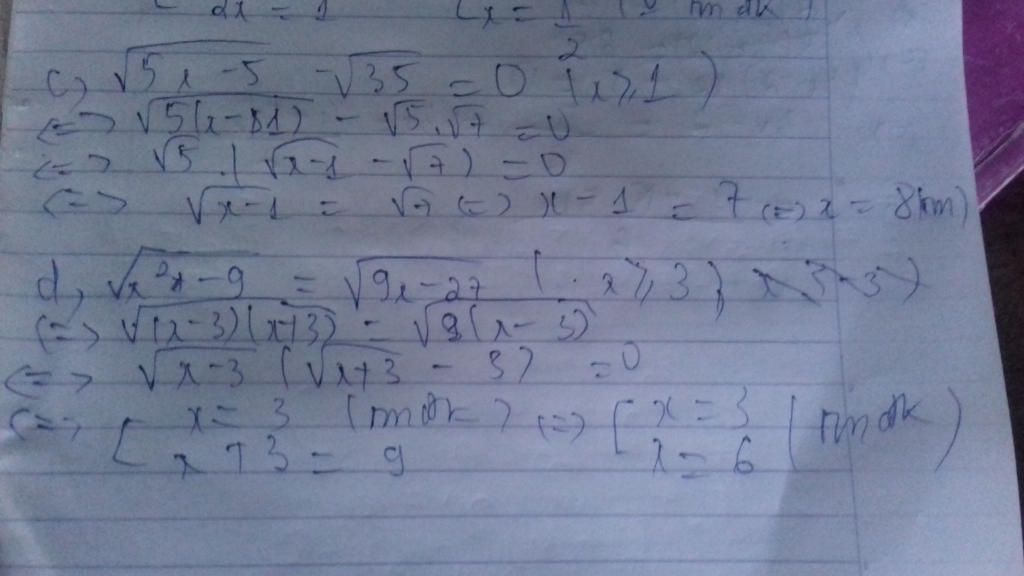 2x = 1 [x = 1/2 (
c, √(5x-5) - √35 = 0 (x ⩾ 1)
<=> √(5(x-1)) - √5.√7 = 0
<=> √5.(√(x-1) - √7) = 0
<=> √(x-1) = √7 <=> x-1 = 7 <=> x = 8 (tm)
d, √(x²-9) = √(9x-27) (x ⩾ 3)
<=> √((x-3)(x+3)) = √(9(x-3))
<=> √(x-3) (√(x+3) - 3) = 0
<=> [ x = 3 (tmđk) <=> [ x = 3 (tmđk)
x + 3 = 9 x = 6